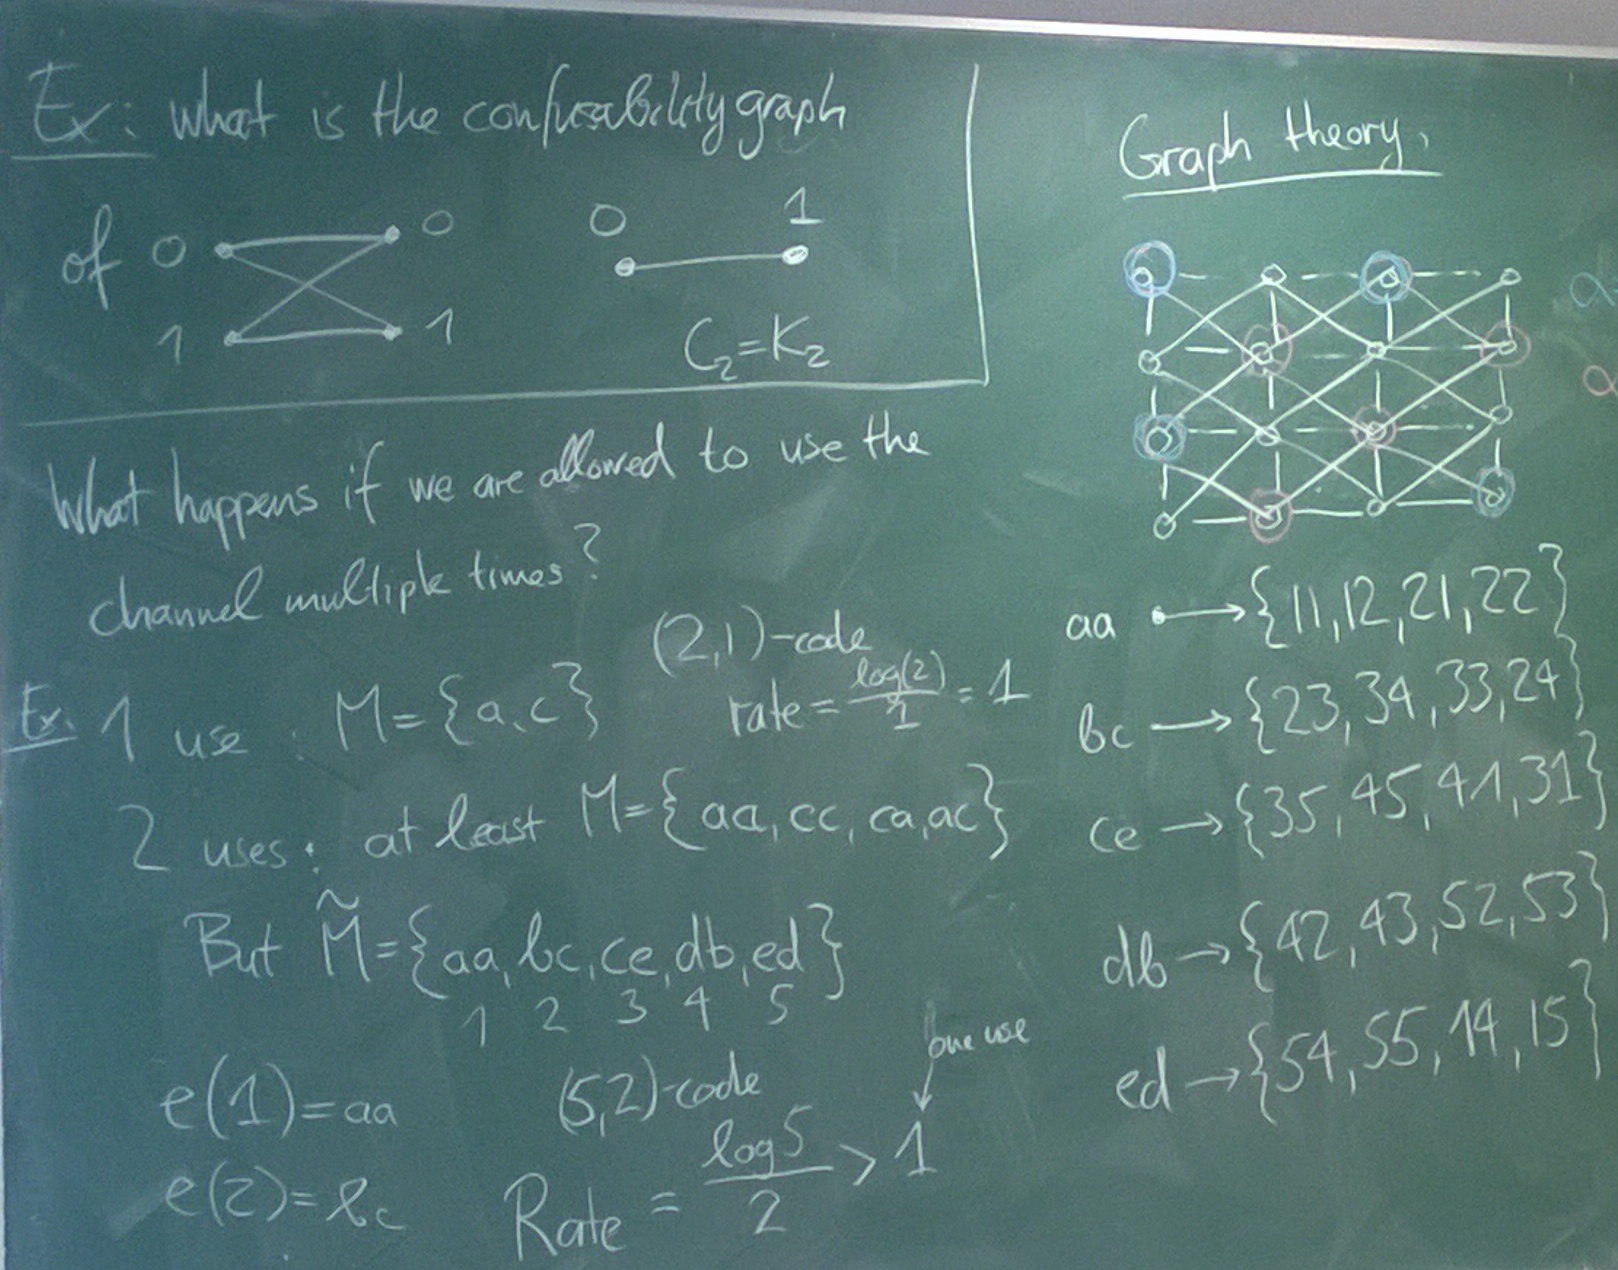 Ex: what is the confusability graph
of 0 0 0 1
1 1 C₂=K₂
What happens if we are allowed to use the
channel multiple times?
Ex. 1 use : M={a,c} (2,1)-code
rate = log(2)/1 = 1
2 uses: at least M={aa, cc, ca, ac}
But M̃={aa, bc, ce, db, ed}
1 2 3 4 5
e(1)=aa (5,2)-code
one use
e(2)=bc Rate = log5/2 > 1
Graph theory.
aa → {11,12,21,22}
bc → {23,34,33,24}
ce → {35,45,41,31}
db → {42,43,52,53}
ed → {54,55,14,15}